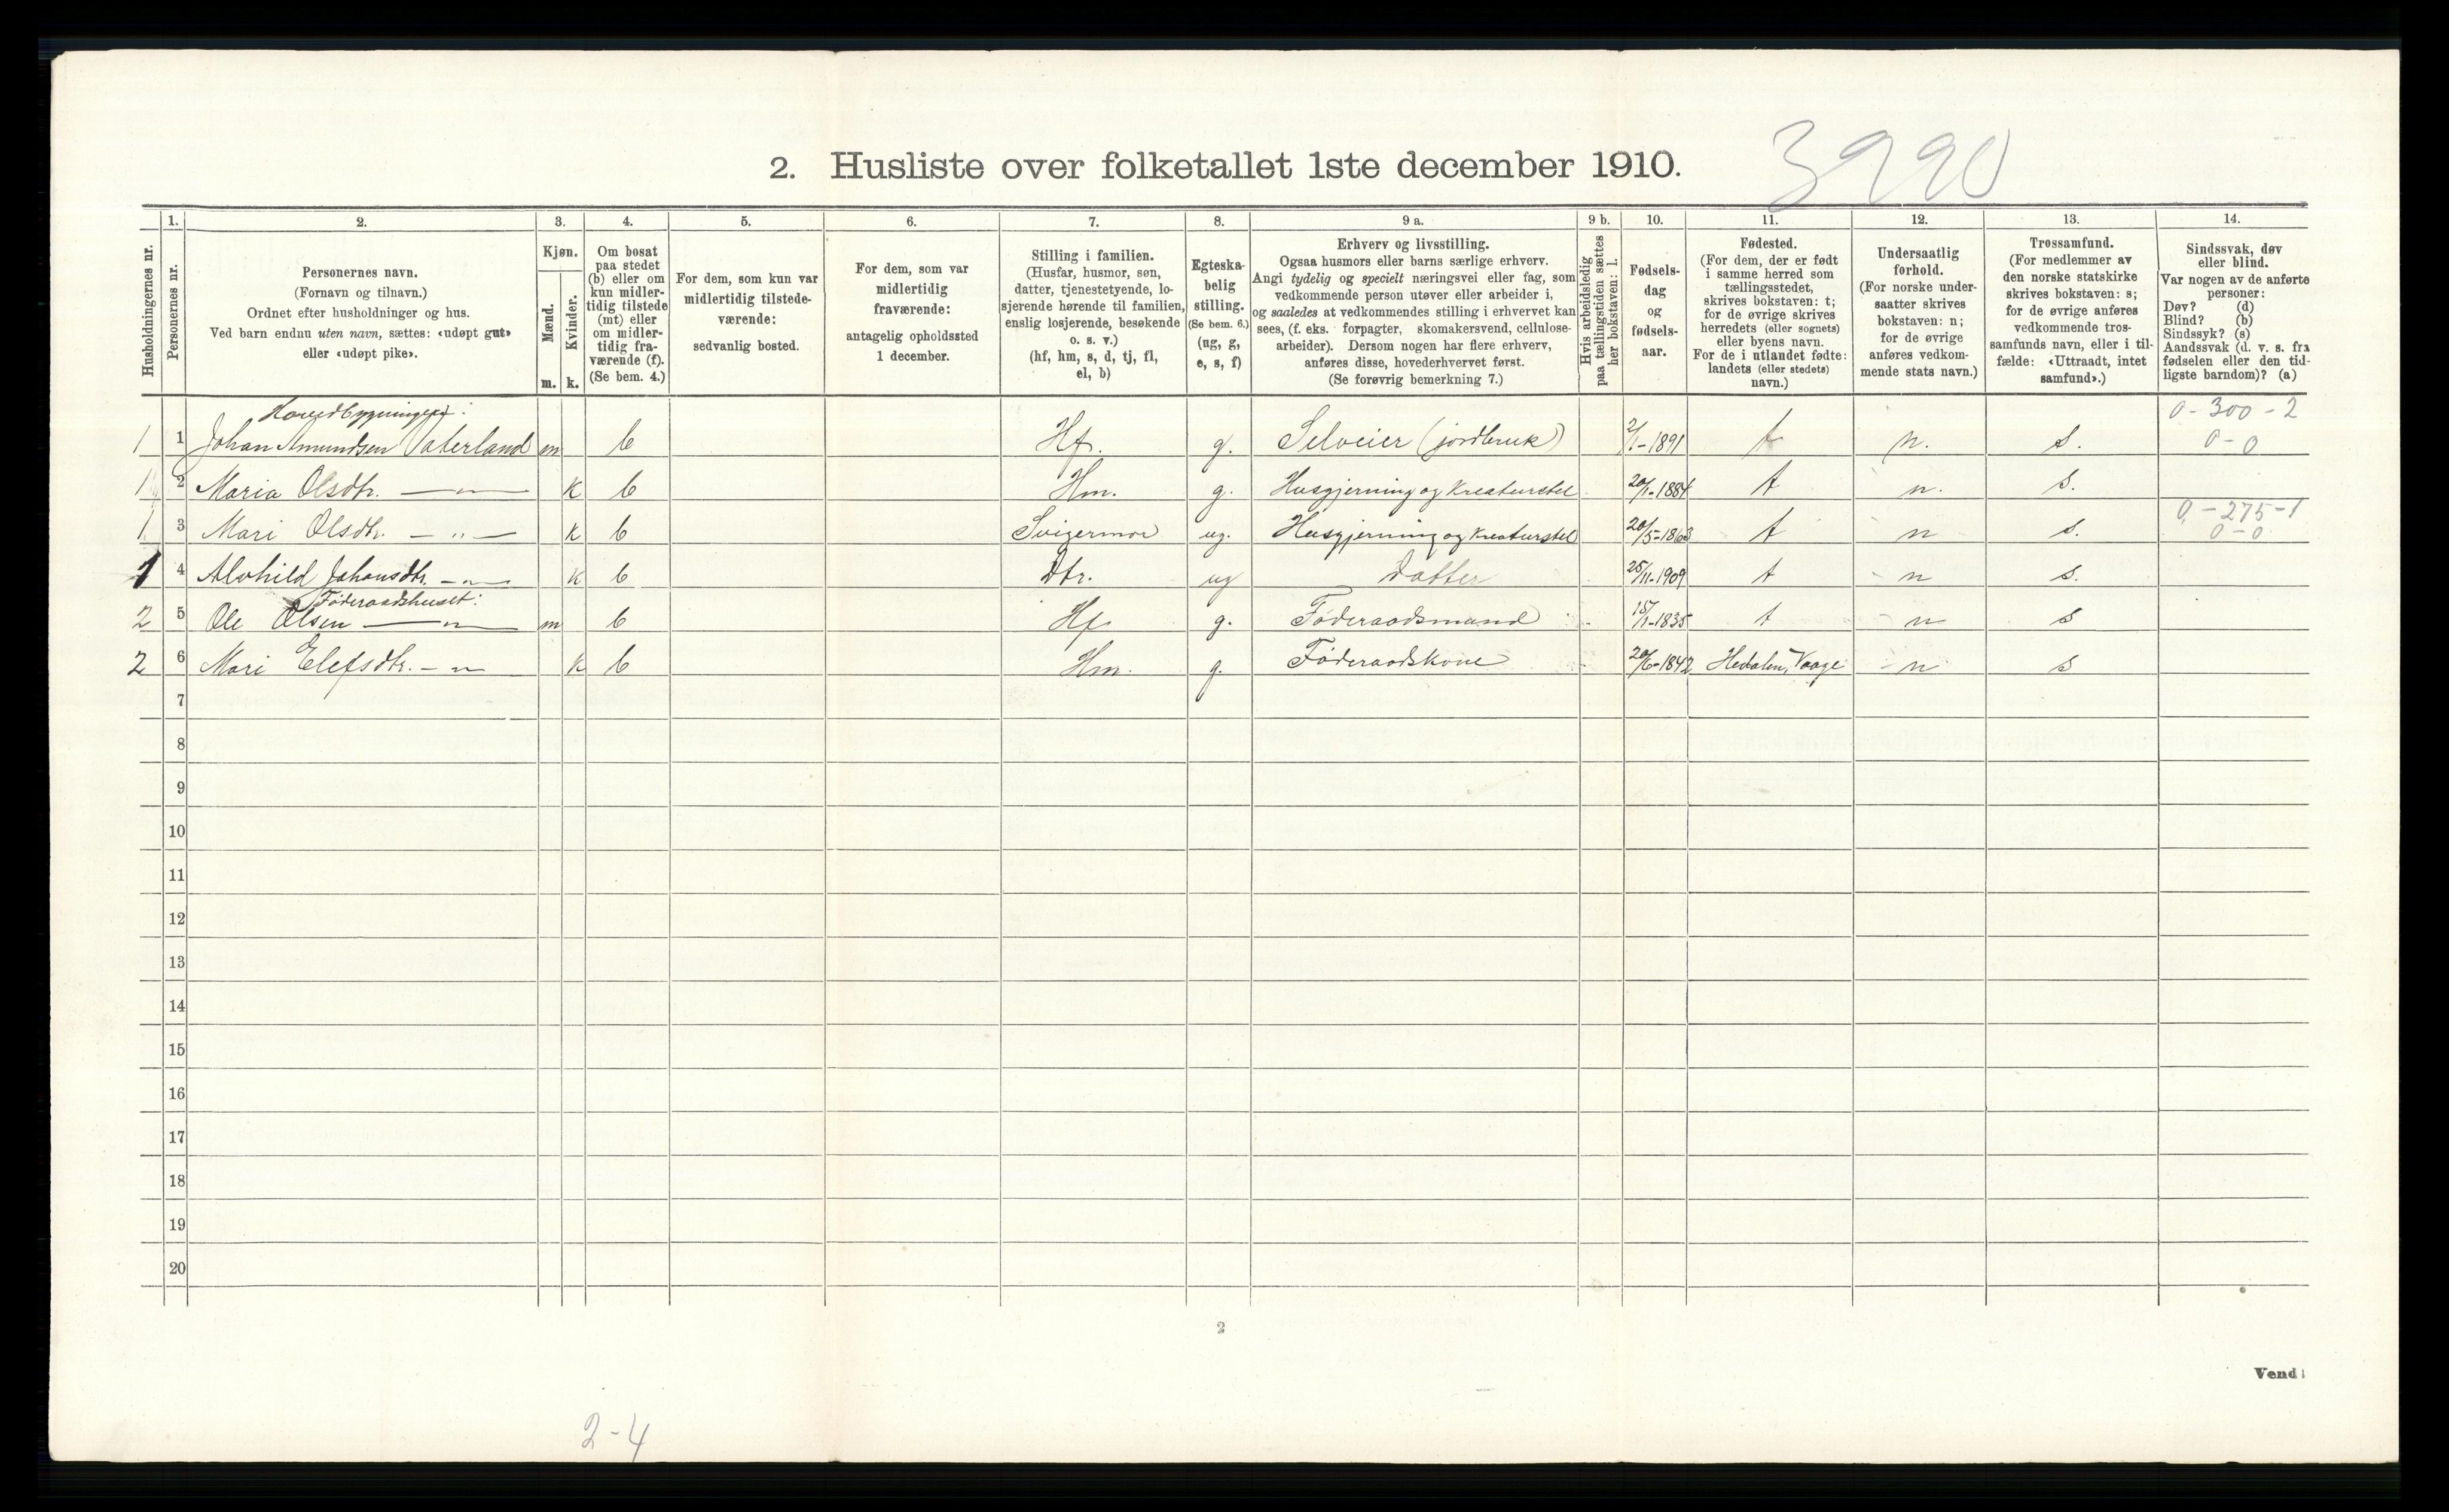 3990
2. Husliste over folketallet 1ste december 1910.
Husholdningernes nr.
1.
Personernes nr.
2.
Personernes navn.
(Fornavn og tilnavn.)
Ordnet efter husholdninger og hus.
Ved barn endnu uten navn, sættes: «udøpt gut»
eller «udøpt pike».
3.
Kjøn.
Mænd.
m.
Kvinder.
k.
4.
Om bosat
paa stedet
(b) eller om
kun midler-
tidig tilstede
(mt) eller
om midler-
tidig fra-
værende (f).
(Se bem. 4.)
5.
For dem, som kun var
midlertidig tilstede-
værende:
sedvanlig bosted.
6.
For dem, som var
midlertidig
fraværende:
antagelig opholdssted
1 december.
7.
Stilling i familien.
(Husfar, husmor, søn,
datter, tjenestetyende, lo-
sjerende hørende til familien,
enslig losjerende, besøkende
o. s. v.)
(hf, hm, s, d, tj, fl,
el, b)
8.
Egteska-
belig
stilling.
(Se bem. 6.)
(ug, g,
e, s, f)
9 a.
Erhverv og livsstilling.
Ogsaa husmors eller barns særlige erhverv.
Angi tydelig og specielt næringsvei eller fag, som
vedkommende person utøver eller arbeider i,
og saaledes at vedkommendes stilling i erhvervet kan
sees, (f. eks. forpagter, skomakersvend, cellulose-
arbeider). Dersom nogen har flere erhverv,
anføres disse, hovederhvervet først.
(Se forøvrig bemerkning 7.)
9 b.
Hvis arbeidsledig
paa tællingstiden sættes
her bokstaven: l.
10.
Fødsels-
dag
og
fødsels-
aar.
11.
Fødested.
(For dem, der er født
i samme herred som
tællingsstedet,
skrives bokstaven: t;
for de øvrige skrives
herredets (eller sognets)
eller byens navn.
For de i utlandet fødte:
landets (eller stedets)
navn.)
12.
Undersaatlig
forhold.
(For norske under-
saatter skrives
bokstaven: n;
for de øvrige
anføres vedkom-
mende stats navn.)
13.
Trossamfund.
(For medlemmer av
den norske statskirke
skrives bokstaven: s;
for de øvrige anføres
vedkommende tros-
samfunds navn, eller i til-
fælde: «Uttraadt, intet
samfund».)
14.
Sindssvak, døv
eller blind.
Var nogen av de anførte
personer:
Døv? (d)
Blind? (b)
Sindssyk? (s)
Aandssvak (d. v. s. fra
fødselen eller den tid-
ligste barndom)? (a)
Hovedbygningen: 0-300-2
1 1 Johan Amundsen Vaterland m b Hf. g. Selveier (jordbruk) 2/1-1891 t n. s. 0-0
1 2 Maria Olsdtr. —"— k b Hm. g. Husgjerning og Kreaturstel 20/1-1884 t n. s.
0-275-1
1 3 Mari Olsdtr. —"— k b Svigermor ug. Husgjerning og Kreaturstel 20/5-1863 t n s. 0-0
1 4 Alvhild Johansdtr. —"— k b Dtr. ug Datter 25/11-1909 t n s.
Føderaadshuset:
2 5 Ole Olsen —"— m b Hf g. Føderaadsmand 15/1-1835 t n s
2 6 Mari Elefsdtr. —"— k b Hm. g. Føderaadskone 20/6-1842 Hedalen, Vaage n s
7
8
9
10
11
12
13
14
15
16
17
18
19
20
2
Vend!
2-4